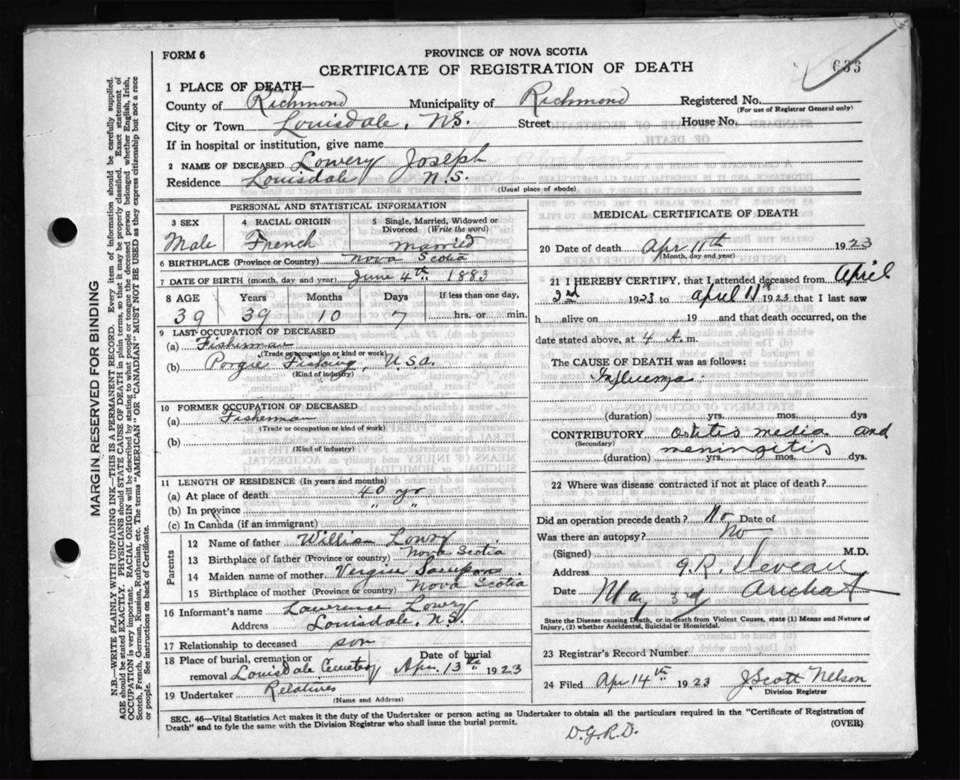 FORM 6
PROVINCE OF NOVA SCOTIA
CERTIFICATE OF REGISTRATION OF DEATH
633
1 PLACE OF DEATH—
County of Richmond Municipality of Richmond Registered No.
(For use of Registrar General only)
City or Town Louisdale, N.S. Street House No.
If in hospital or institution, give name
2 NAME OF DECEASED Lowery Joseph
Residence Louisdale N.S.
(Usual place of abode)
PERSONAL AND STATISTICAL INFORMATION
3 SEX 4 RACIAL ORIGIN 5 Single, Married, Widowed or Divorced (Write the word)
Male French married
6 BIRTHPLACE (Province or Country) Nova Scotia
7 DATE OF BIRTH (month, day and year) June 4th 1883
8 AGE Years Months Days If less than one day,
39 39 10 7 hrs. or min.
9 LAST OCCUPATION OF DECEASED
(a) Fisherman
(Trade or occupation or kind of work)
(b) Porgie Fishing, U.S.a.
(Kind of industry)
10 FORMER OCCUPATION OF DECEASED
(a) Fisherman
(Trade or occupation or kind of work)
(b)
(Kind of industry)
11 LENGTH OF RESIDENCE (In years and months)
(a) At place of death 40 yr
(b) In province " "
(c) In Canada (if an immigrant)
Parents
12 Name of father William Lowry
13 Birthplace of father (Province or country) Nova Scotia
14 Maiden name of mother Vergin Sampson
15 Birthplace of mother (Province or country) Nova Scotia
16 Informant's name Lawrence Lowry
Address Louisdale, N.S.
17 Relationship to deceased son
18 Place of burial, cremation or removal Louisdale Cemetery Date of burial Apr. 13th 1923
19 Undertaker Relatives
(Name and Address)
MEDICAL CERTIFICATE OF DEATH
20 Date of death Apr 11th 1923
(Month, day and year)
21 I HEREBY CERTIFY, that I attended deceased from April
2nd 1923 to april 11th 1923 that I last saw
h alive on 19 and that death occurred, on the
date stated above, at 4 A.m.
The CAUSE OF DEATH was as follows:
Influenza
(duration) yrs. mos. dys
CONTRIBUTORY ostitis media and
(Secondary) meningitis
(duration) yrs. mos. dys.
22 Where was disease contracted if not at place of death?
Did an operation precede death? No Date of
Was there an autopsy? No
(Signed) J.R. Deveau M.D.
Address Arichat
Date May 3rd
State the Disease causing Death, or in death from Violent Causes, state (1) Means and Nature of Injury, (2) whether Accidental, Suicidal or Homicidal.
23 Registrar's Record Number
24 Filed Apr 14th 1923 J. Scott Nelson
Division Registrar
SEC. 46—Vital Statistics Act makes it the duty of the Undertaker or person acting as Undertaker to obtain all the particulars required in the "Certificate of Registration of
Death" and to fyle the same with the Division Registrar who shall issue the burial permit. (OVER)
D.G.R.D.
MARGIN RESERVED FOR BINDING
N.B.—WRITE PLAINLY WITH UNFADING INK—THIS IS A PERMANENT RECORD. Every item of information should be carefully supplied.
AGE should be stated EXACTLY. PHYSICIANS should STATE CAUSE OF DEATH in plain terms, so that it may be properly classified. Exact statement of
OCCUPATION is very important. RACIAL ORIGIN will be described by stating to what people or tongue the deceased person belonged, whether English, Irish,
Scotch, French, German, Russian, Ruthenian, etc. The terms "AMERICAN" OR "CANADIAN" MUST NOT BE USED as they express citizenship but not a race
or people. See instructions on back of Certificate.